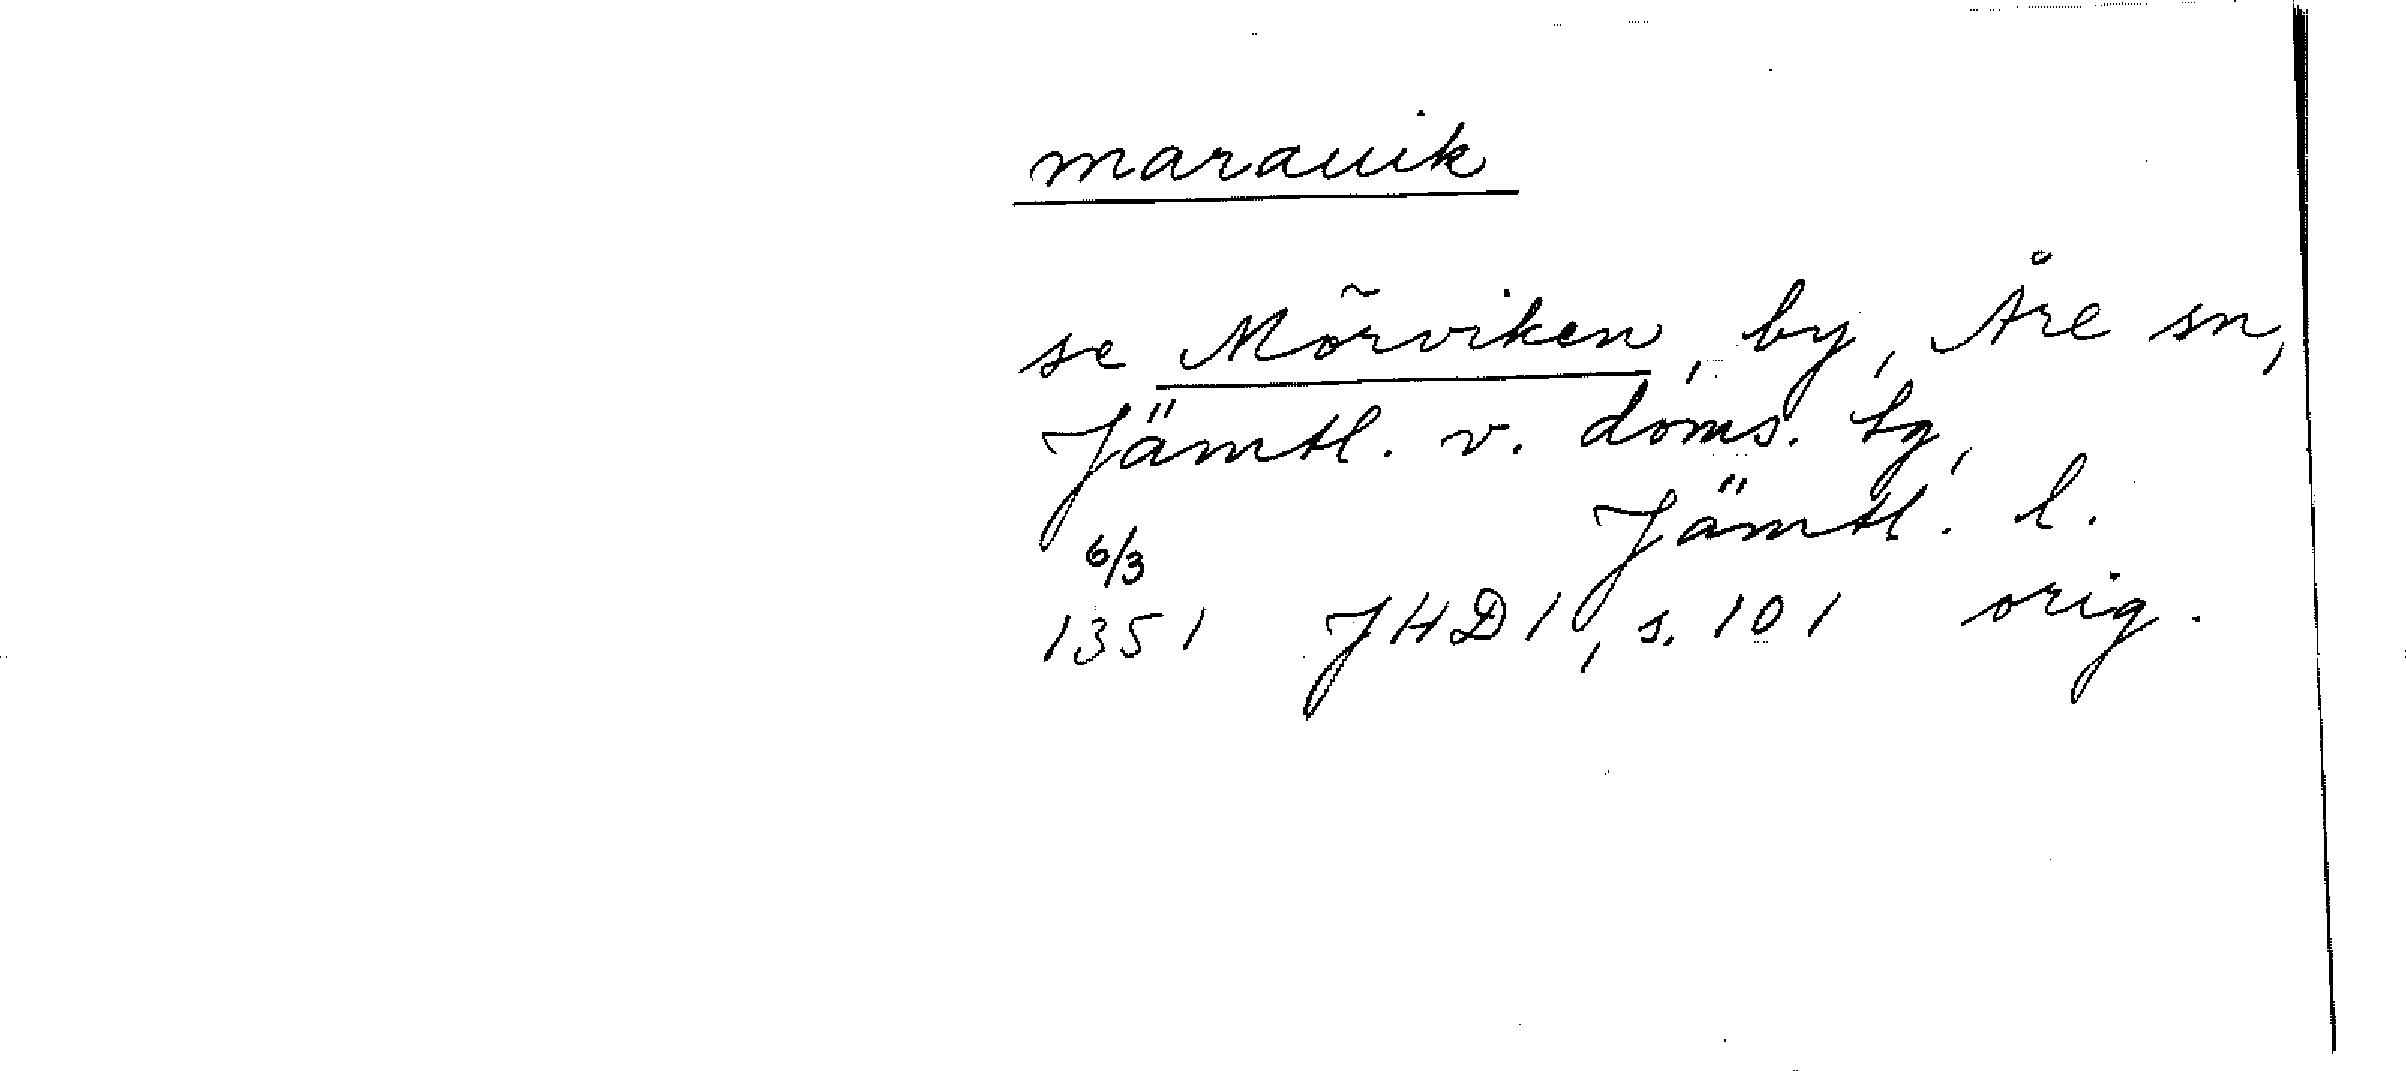 marauik
se Mörviken, by, Åre sn,
Jämtl. v. doms. tg,
Jämtl. l.
6/3
1351 JHD 1, s. 101 orig.